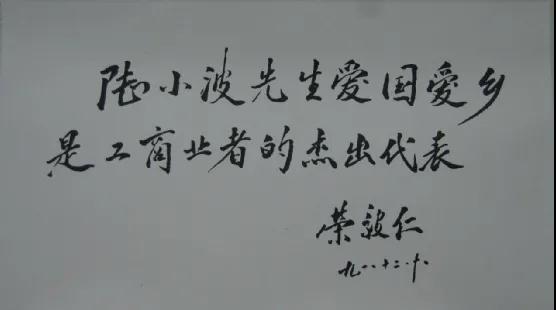 陆小波先生爱国爱乡
是工商业者的杰出代表
荣毅仁
九八·十二·十